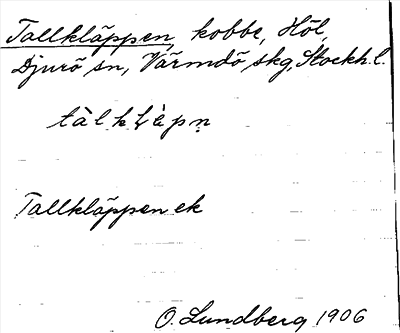 Tallkläppen, kobbe, Höl,
Djurö sn, Värmdö skg, Stockh. l.
Tallkläppen ek
O. Lundberg 1906